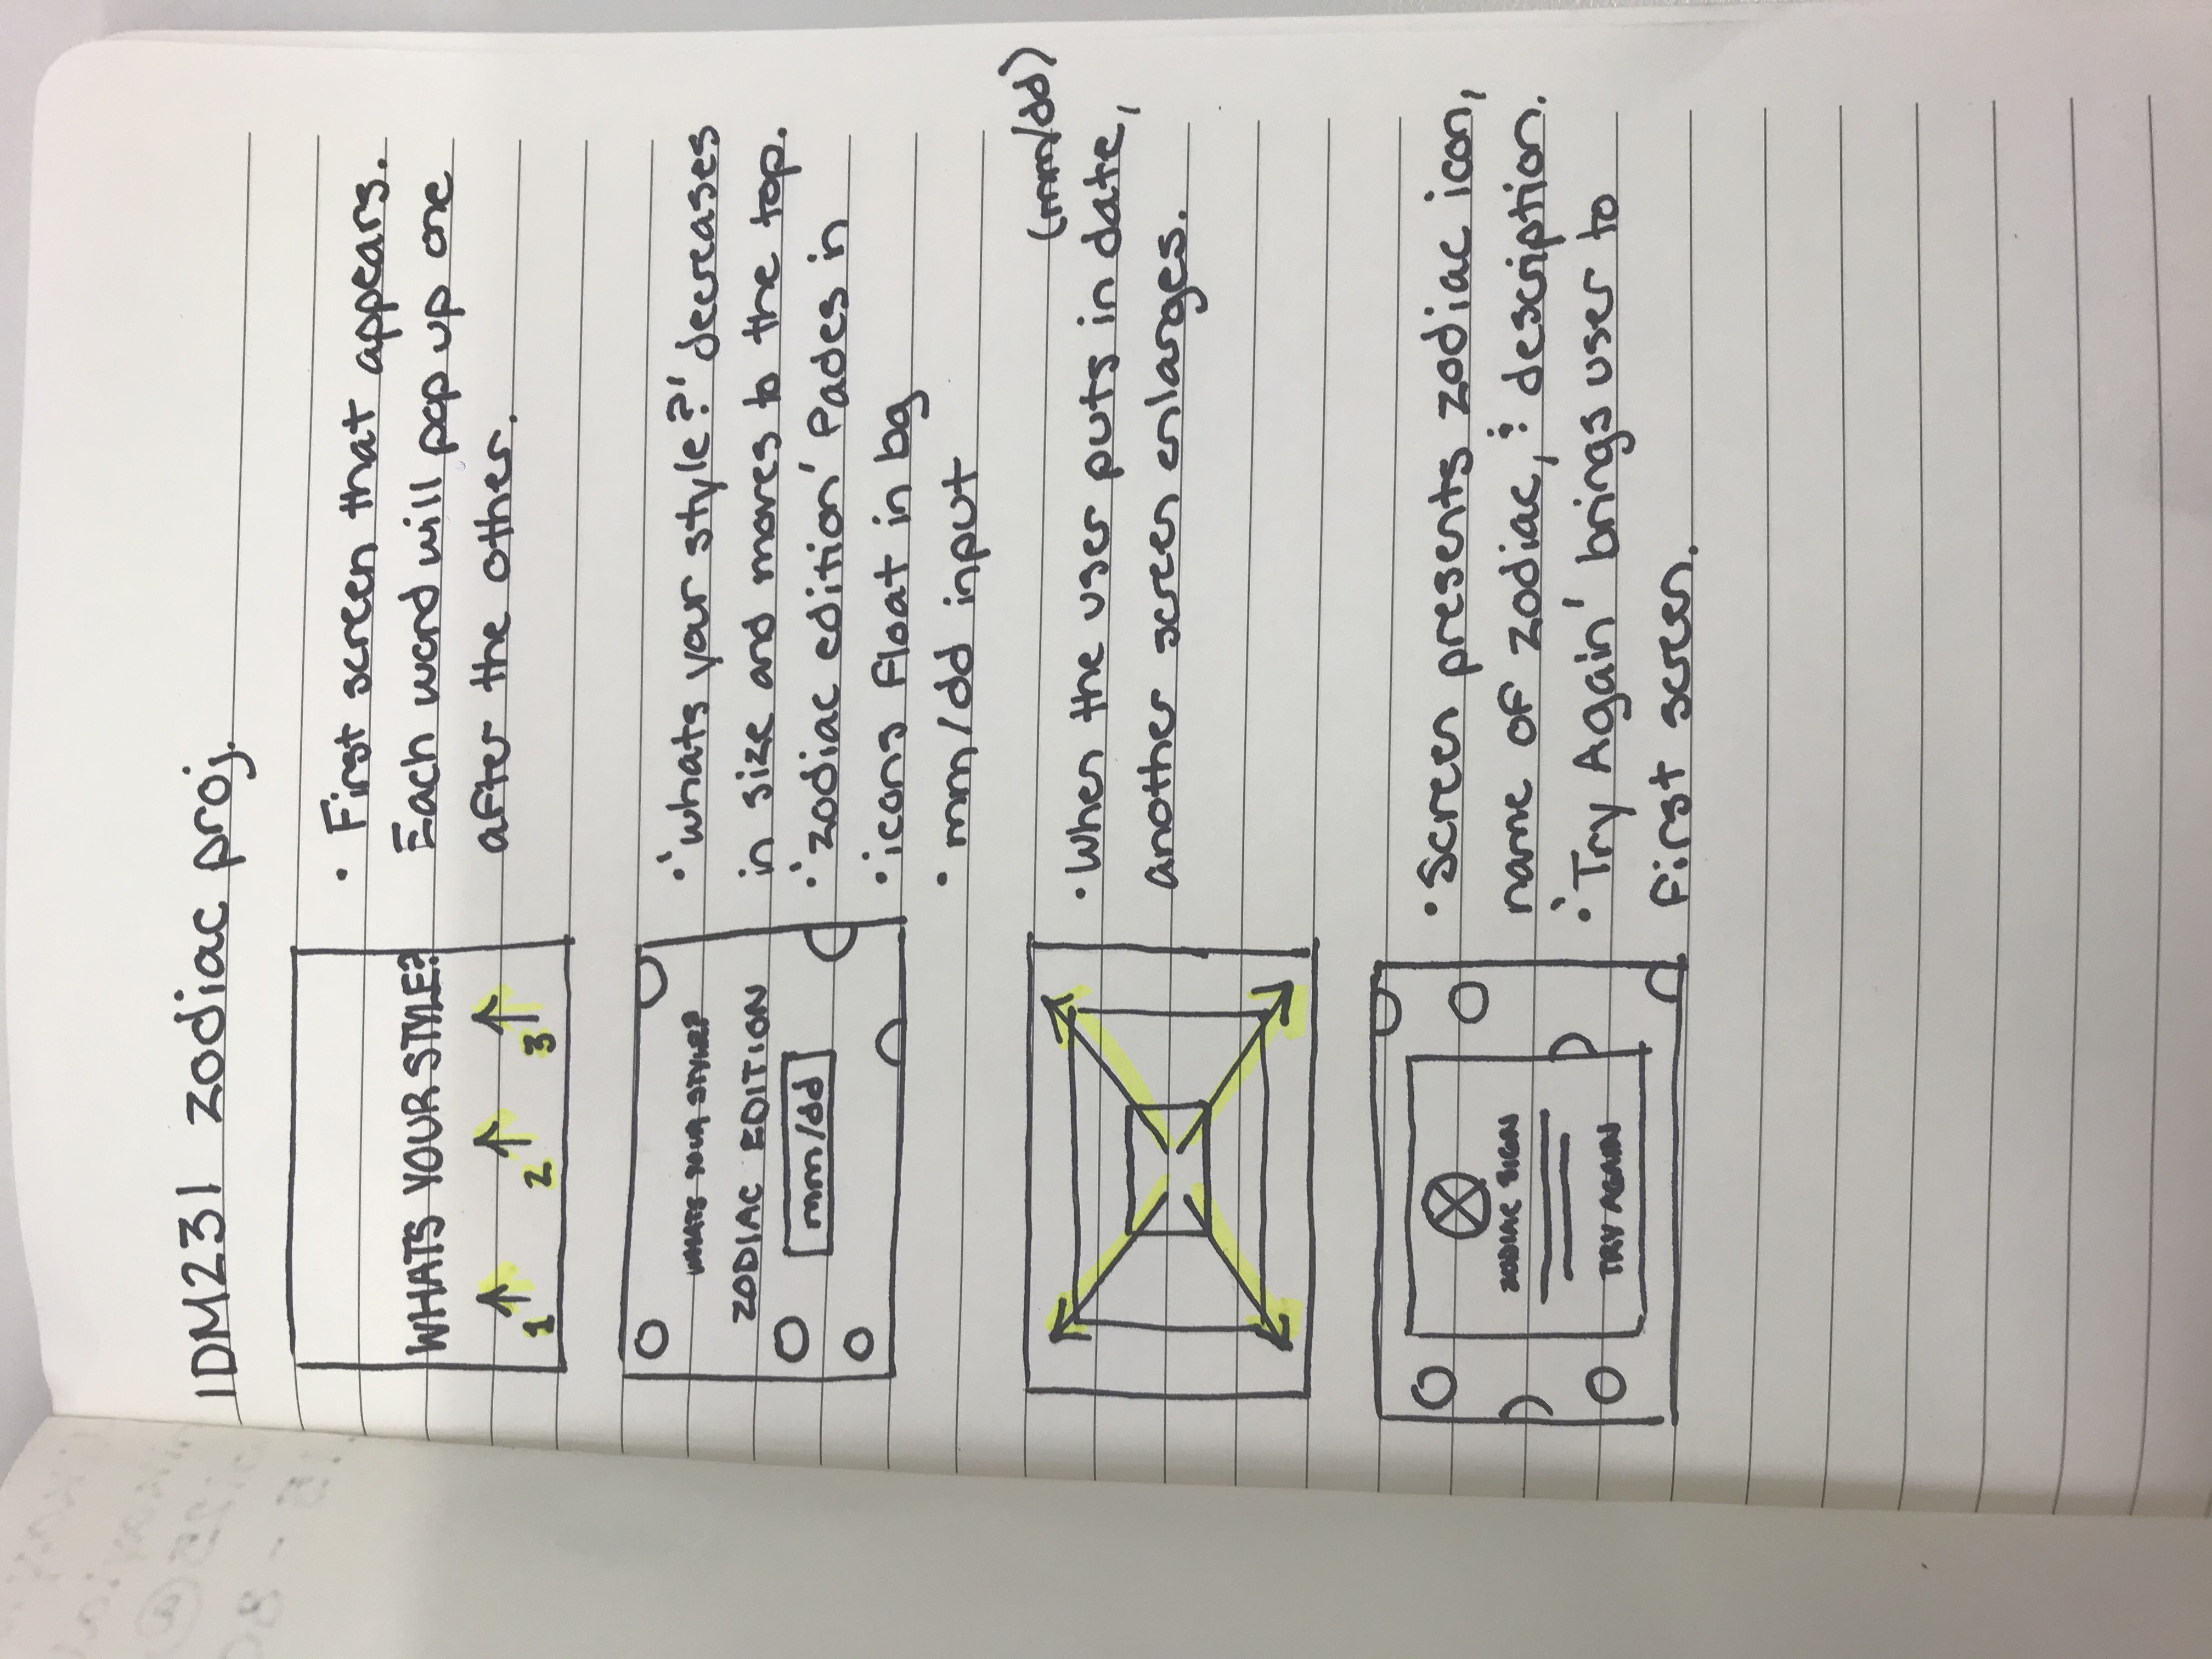 IDM231 zodiac proj.
WHATS YOUR STYLE?
1 2 3
• First screen that appears.
Each word will pop up one
after the other.
WHATS YOUR STYLE?
ZODIAC EDITION
mm/dd
• 'whats your style?' decreases
in size and moves to the top.
• 'zodiac edition' fades in
• icons float in bg
• mm/dd input
(mm/dd)
• When the user puts in date,
another screen enlarges.
ZODIAC SIGN
TRY AGAIN
• Screen presents zodiac icon,
name of zodiac, & description.
• 'Try Again' brings user to
first screen.